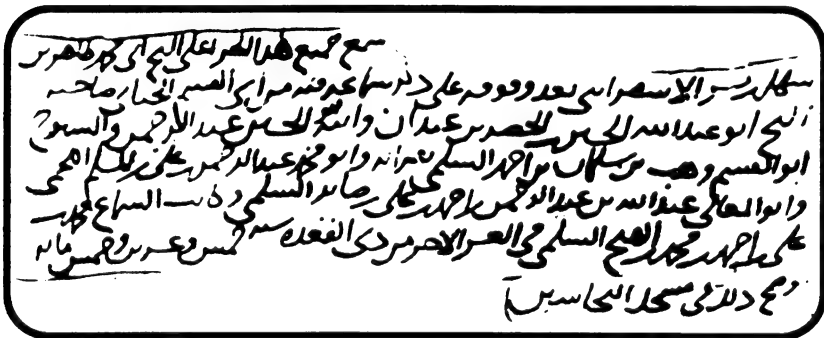 سمع جميع هذا الجزء على الشيخ أبي محمد طاهر بن
سهل بن بشر الإسفرايني بعد وقوفه على ذكر سماعه فيه من أبي القسم الحنائي صاحبه
الشيخ أبو عبد الله الحسين بن الخضر بن عبدان والله الحسن بن عبد الرحمن والشيوخ
أبو القسم وهب بن سلمان بن أحمد السلمي بقراءته وأبو محمد عبد الرحمن بن علي بن المسلم اللخمي
وأبو المعالي عبد الله بن عبد الرحمن بن أحمد بن علي بن صابر السلمي وكاتب السماع محمد بن
علي بن أحمد بن محمد بن الفتح السلمي في العشر الآخر من ذي القعدة سنة خمس وعشرين وخمس مائة
وصح ذلك في مسجد النحاسين